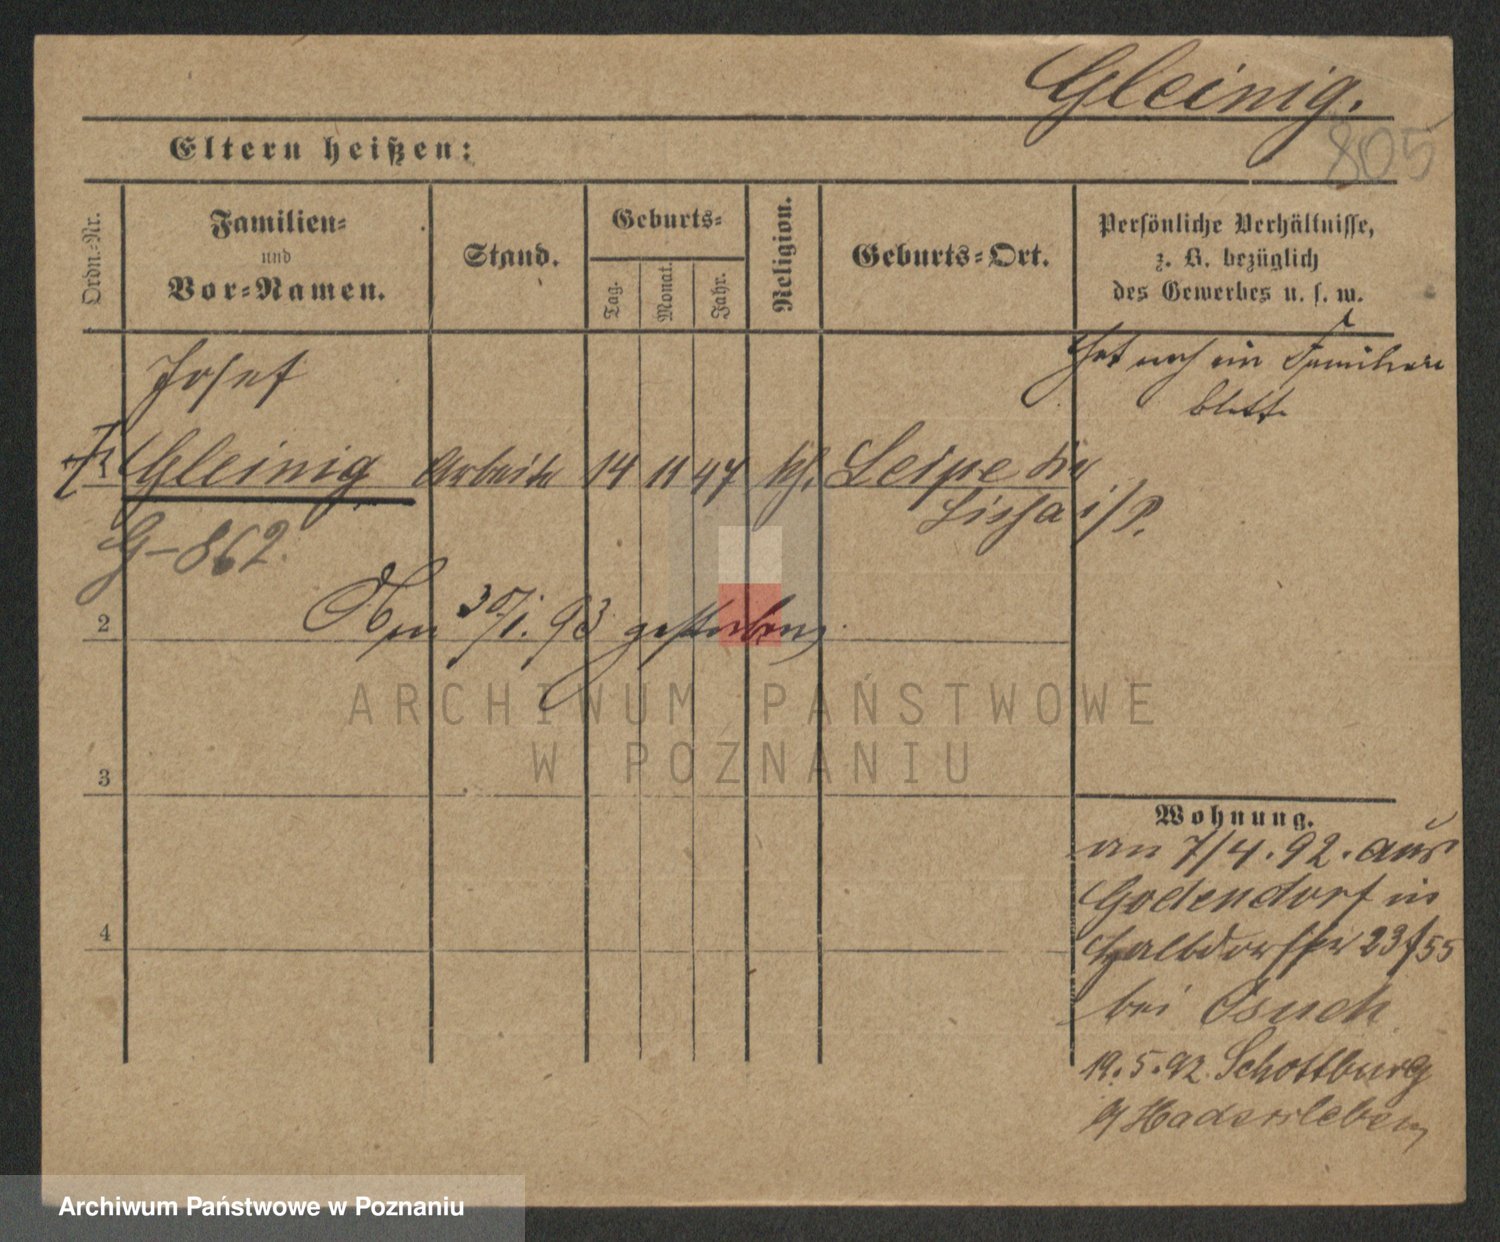 Gleinig.
805
Eltern heißen:
Ordn.-Nr.
Familien-
und
Vor-Namen.
Stand.
Geburts-
Tag.
Monat.
Jahr.
Religion.
Geburts-Ort.
Persönliche Verhältnisse,
z. B. bezüglich
des Gewerbes u. s. w.
Hat noch ein Familien
blatt
Josef
Gleinig Arbeiter 14 11 47 kth. Leipe Kr
Lissa i/P.
G-862.
2
Am 30/1. 93 gestorben
ARCHIWUM PAŃSTWOWE
W POZNANIU
3
Wohnung.
am 7/4. 92. aus
Godendorf in
Halbdorfstr 23/55
bei Osuch
19.5.92. Schottburg
Hadersleben
4
Archiwum Państwowe w Poznaniu